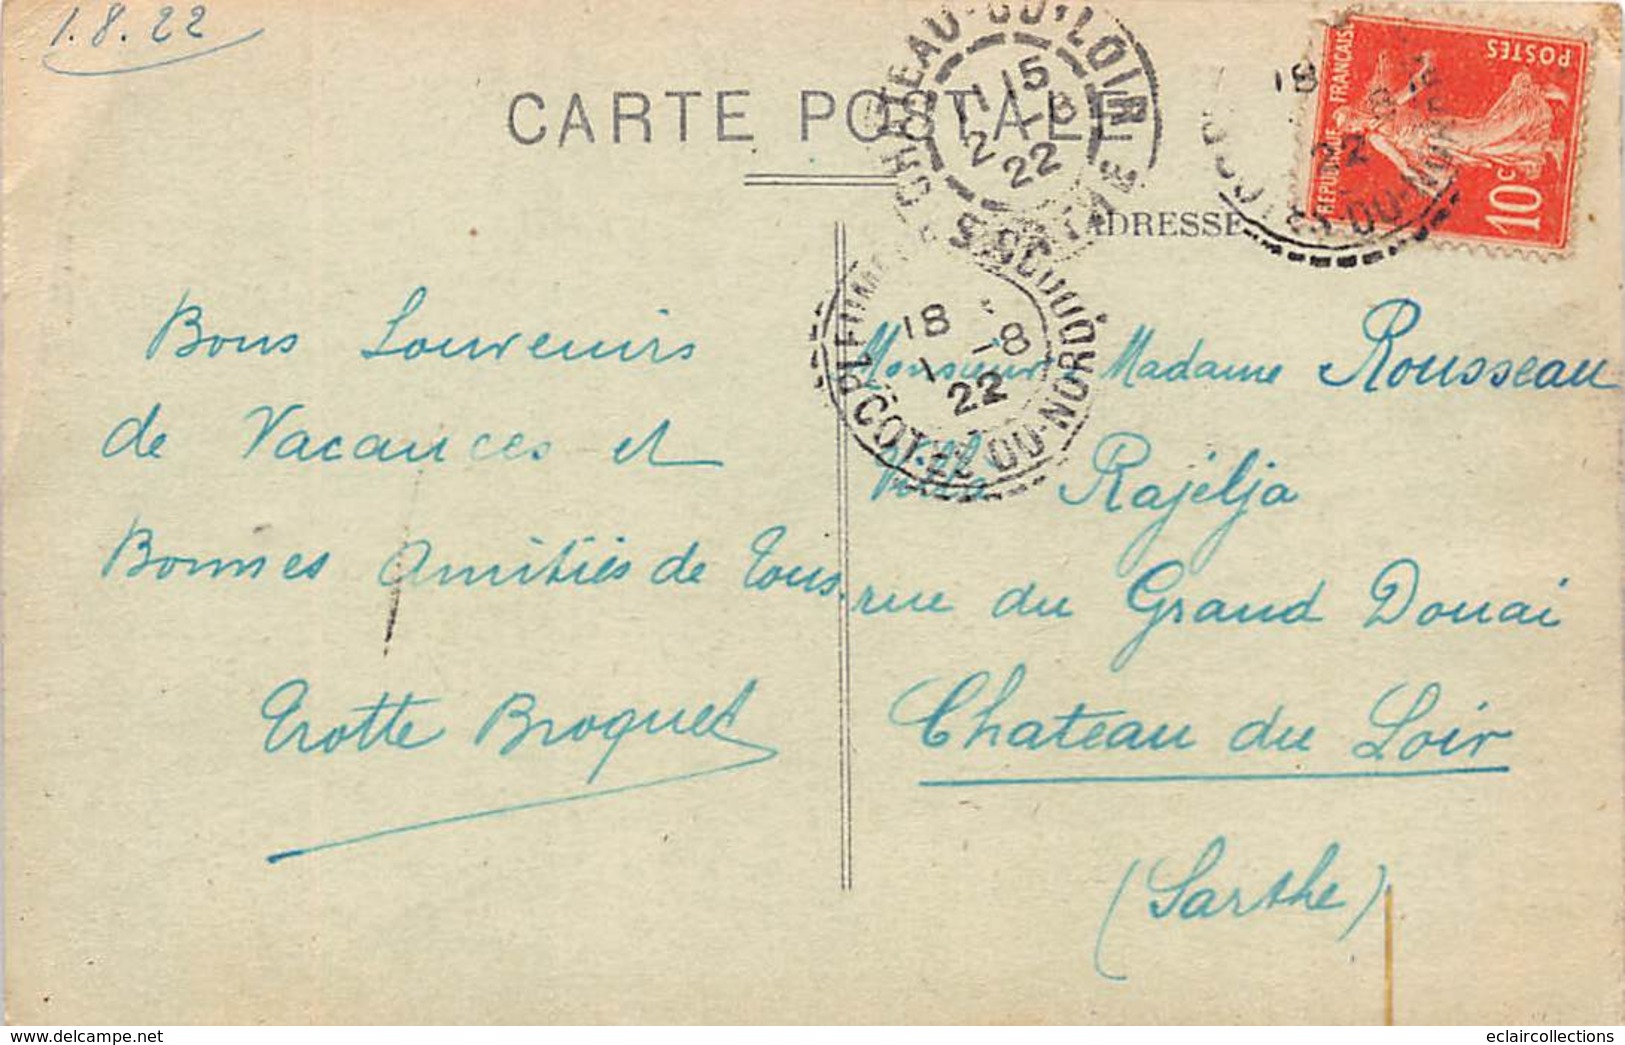 1.8.22
CARTE POSTALE
ADRESSE
CHATEAU-DU-LOIR
SARTHE
11 15
2 -8
22
PLEUMEUR
CÔTES-DU-NORD
18
1 -8
22
18
22
CÔTES-DU-NORD
RÉPUBLIQUE FRANÇAISE
POSTES
10c
Bons Souvenirs
de Vacances et
Bonnes Amitiés de tous.
Trotte Broquet
Monsieur & Madame Rousseau
Villa Rajélja
rue du Grand Douai
Chateau du Loir
(Sarthe)
eclaircollections